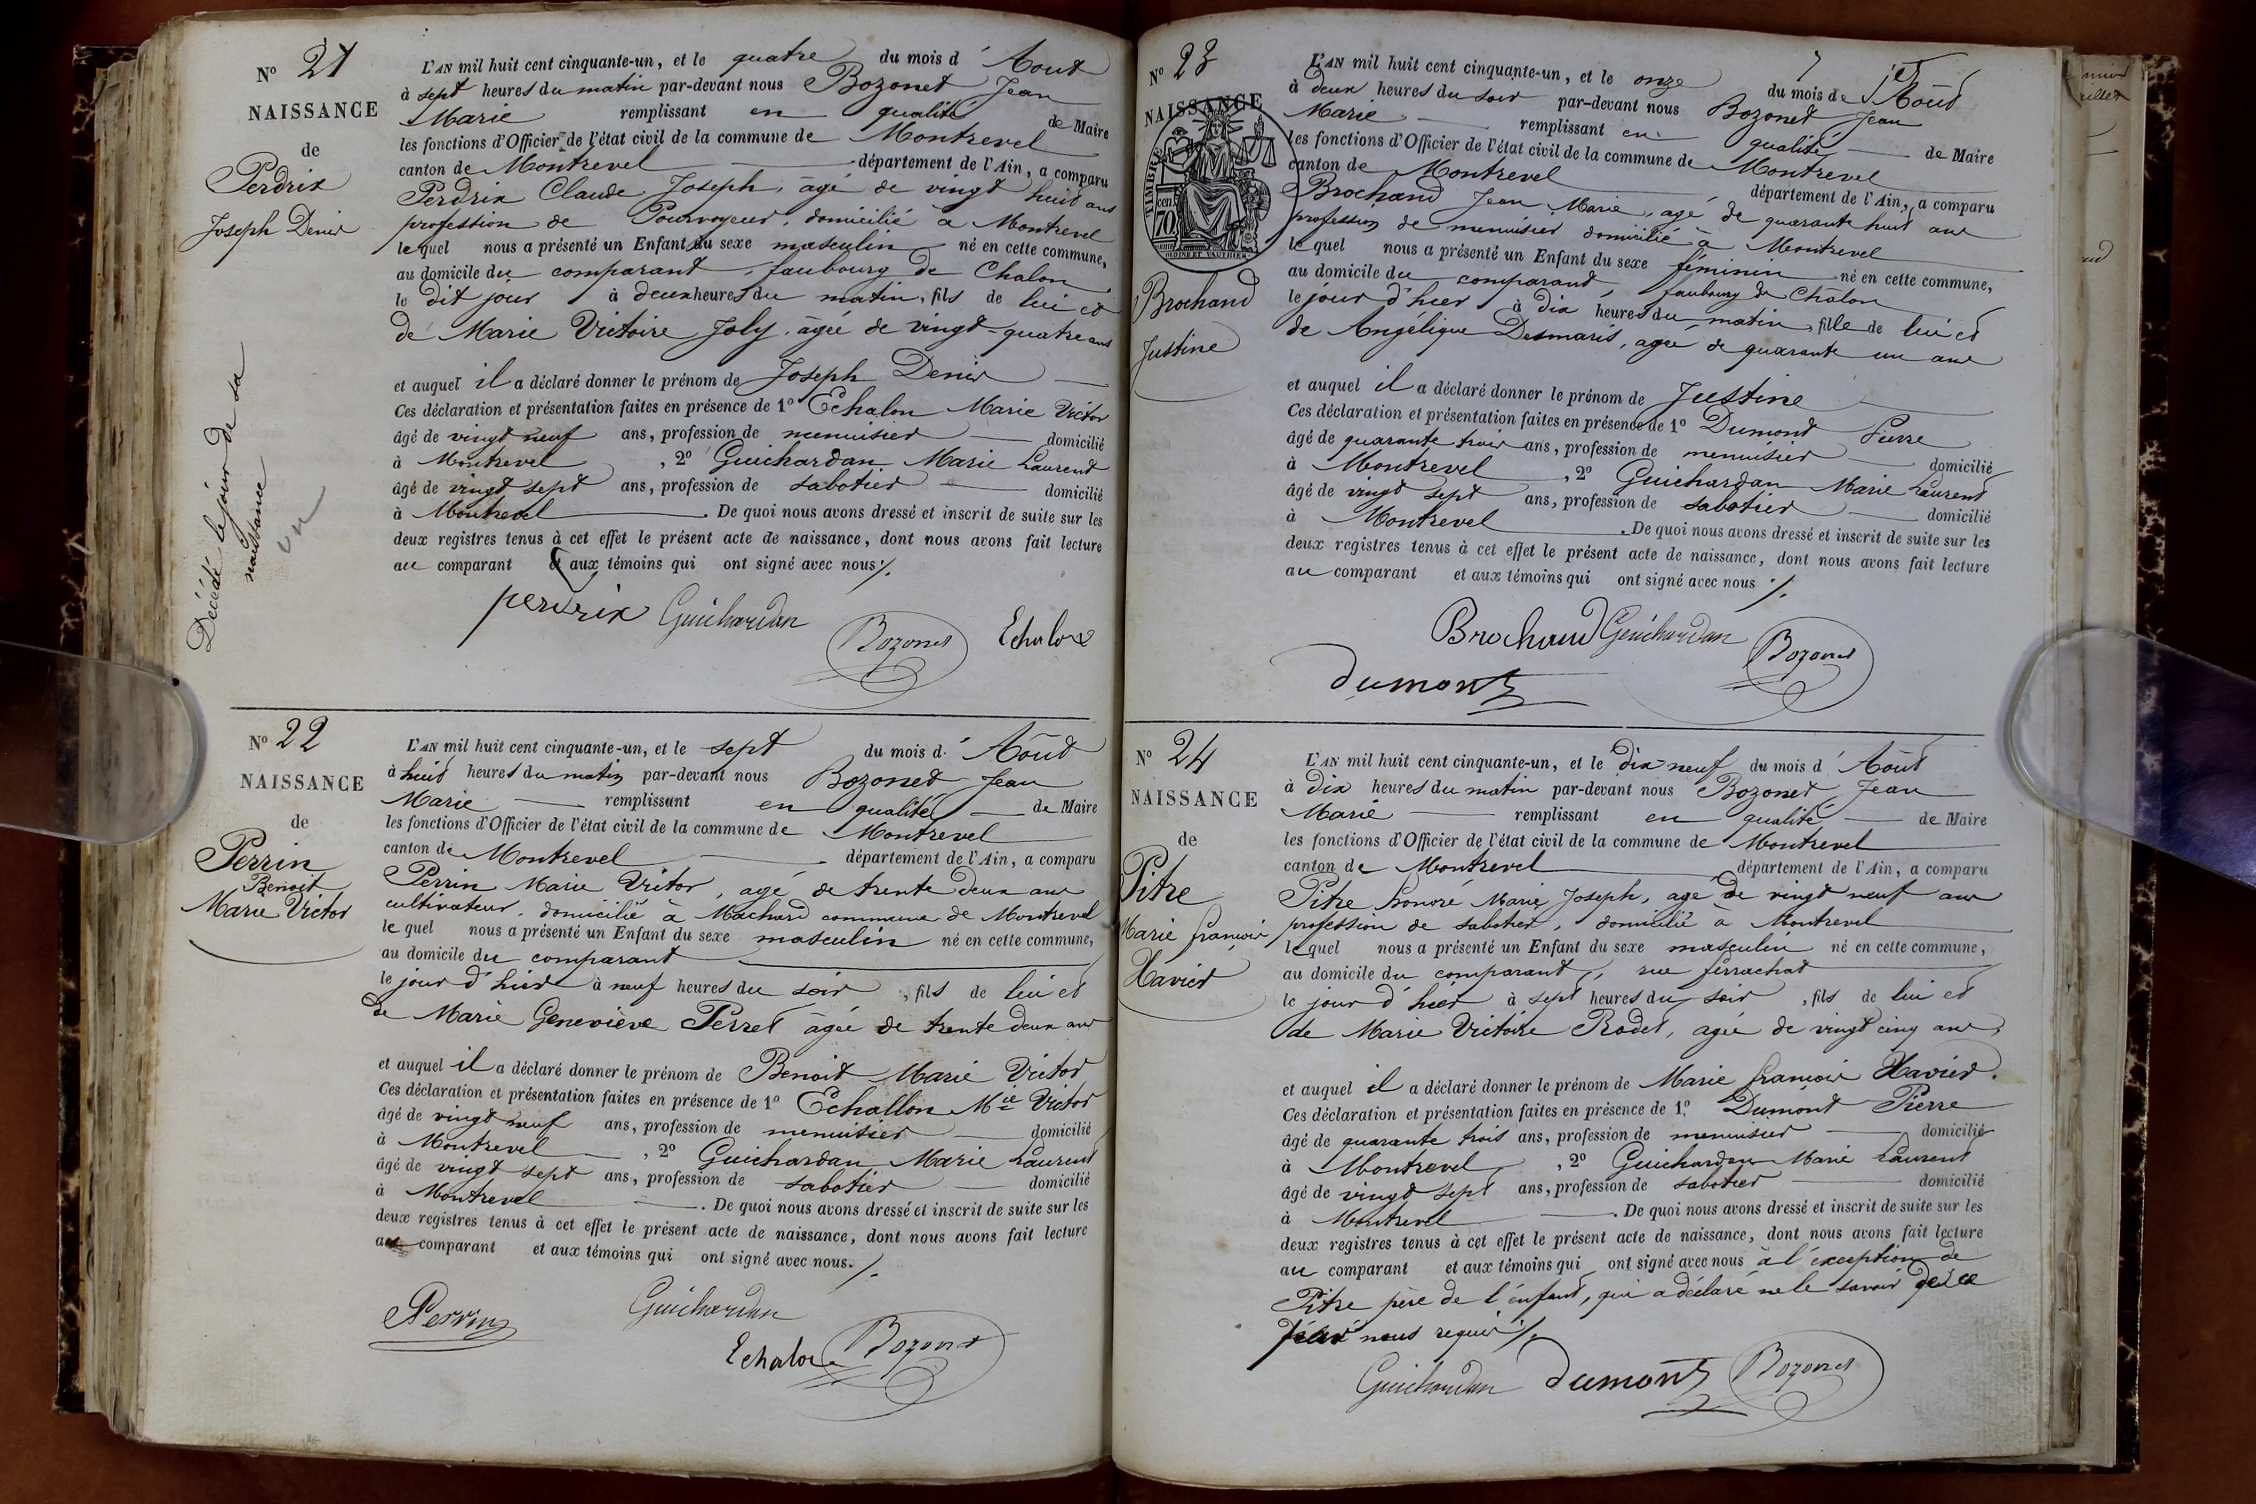 N° 21
NAISSANCE
de
Perdrix
Joseph Denis
Décédé le jour de sa
naissance
L'AN mil huit cent cinquante-un, et le quatre du mois d'Aout
à sept heures du matin par-devant nous Bozonet Jean
Marie remplissant en qualité de Maire
les fonctions d'Officier de l'état civil de la commune de Montrevel
canton de Montrevel département de l'Ain, a comparu
Perdrix Claude Joseph, âgé de vingt huit ans
profession de Pourvoyeur, domicilié à Montrevel
lequel nous a présenté un Enfant du sexe masculin né en cette commune,
au domicile du comparant, faubourg de Chalon,
le dit jour à deux heures du matin, fils de lui et
de Marie Victoire Joly, âgée de vingt-quatre ans
et auquel il a déclaré donner le prénom de Joseph Denis
Ces déclaration et présentation faites en présence de 1° Echalon Marie Victor
âgé de vingt neuf ans, profession de menuisier domicilié
à Montrevel, 2° Guichardan Marie Laurent
âgé de vingt sept ans, profession de sabotier domicilié
à Montrevel. De quoi nous avons dressé et inscrit de suite sur les
deux registres tenus à cet effet le présent acte de naissance, dont nous avons fait lecture
au comparant et aux témoins qui ont signé avec nous ./.
perdrix Guichardan
Bozonet Echalon
N° 22
NAISSANCE
de
Perrin
Benoit
Marie Victor
L'AN mil huit cent cinquante-un, et le sept du mois d'Aôut
à huit heures du matin par-devant nous Bozonet Jean
Marie remplissant en qualité de Maire
les fonctions d'Officier de l'état civil de la commune de Montrevel
canton de Montrevel département de l'Ain, a comparu
Perrin Marie Victor, agé de trente deux ans
cultivateur, domicilié à Machard commune de Montrevel
lequel nous a présenté un Enfant du sexe masculin né en cette commune,
au domicile du comparant
le jour d'hier à neuf heures du soir, fils de lui et
de Marie Geneviève Perret âgée de trente deux ans
et auquel il a déclaré donner le prénom de Benoit Marie Victor
Ces déclaration et présentation faites en présence de 1° Echallon Mie Victor
âgé de vingt neuf ans, profession de menuisier domicilié
à Montrevel, 2° Guichardan Marie Laurent
âgé de vingt sept ans, profession de sabotier domicilié
à Montrevel. De quoi nous avons dressé et inscrit de suite sur les
deux registres tenus à cet effet le présent acte de naissance, dont nous avons fait lecture
au comparant et aux témoins qui ont signé avec nous. ./.
Perrin Guichardan
Echalon Bozonet
N° 23
NAISSANCE
TIMBRE
70 cen.
Brochand
Justine
L'AN mil huit cent cinquante-un, et le onze du mois de Aôut
à deux heures du soir par-devant nous Bozonet Jean
Marie remplissant en qualité de Maire
les fonctions d'Officier de l'état civil de la commune de Montrevel
canton de Montrevel département de l'Ain, a comparu
Brochand Jean Marie, agé de quarante huit ans
profession de menuisier domicilié à Montrevel
lequel nous a présenté un Enfant du sexe féminin né en cette commune,
au domicile du comparant, faubourg de Châlon
le jour d'hier à dix heures du matin, fille de lui et
de Angélique Desmaris, agée de quarante un ans
et auquel il a déclaré donner le prénom de Justine
Ces déclaration et présentation faites en présence de 1° Dumont Pierre
âgé de quarante trois ans, profession de menuisier domicilié
à Montrevel, 2° Guichardan Marie Laurent
âgé de vingt sept ans, profession de sabotier domicilié
à Montrevel. De quoi nous avons dressé et inscrit de suite sur les
deux registres tenus à cet effet le présent acte de naissance, dont nous avons fait lecture
au comparant et aux témoins qui ont signé avec nous ./.
Brochand Guichardan Bozonet
dumont
N° 24
NAISSANCE
de
Pitre
Marie françois
Xavier
L'AN mil huit cent cinquante-un, et le dix-neuf du mois d'Aôut
à dix heures du matin par-devant nous Bozonet Jean
Marie remplissant en qualité de Maire
les fonctions d'Officier de l'état civil de la commune de Montrevel
canton de Montrevel département de l'Ain, a comparu
Pitre honoré Marie Joseph, agé de vingt neuf ans
profession de sabotier, domicilié à Montrevel
lequel nous a présenté un Enfant du sexe masculin né en cette commune,
au domicile du comparant, rue ferrachat
le jour d'hier à sept heures du soir, fils de lui et
de Marie Victoire Rodet, agée de vingt cinq ans,
et auquel il a déclaré donner le prénom de Marie francois Xavier.
Ces déclaration et présentation faites en présence de 1° Dumont Pierre
âgé de quarante trois ans, profession de menuisier domicilié
à Montrevel, 2° Guichardan Marie Laurent
âgé de vingt sept ans, profession de sabotier domicilié
à Montrevel. De quoi nous avons dressé et inscrit de suite sur les
deux registres tenus à cet effet le présent acte de naissance, dont nous avons fait lecture
au comparant et aux témoins qui ont signé avec nous à l'exception de
Pitre père de l'enfant, qui a déclaré ne le savoir de ce
nous requis ./.
Guichardan dumont Bozonet